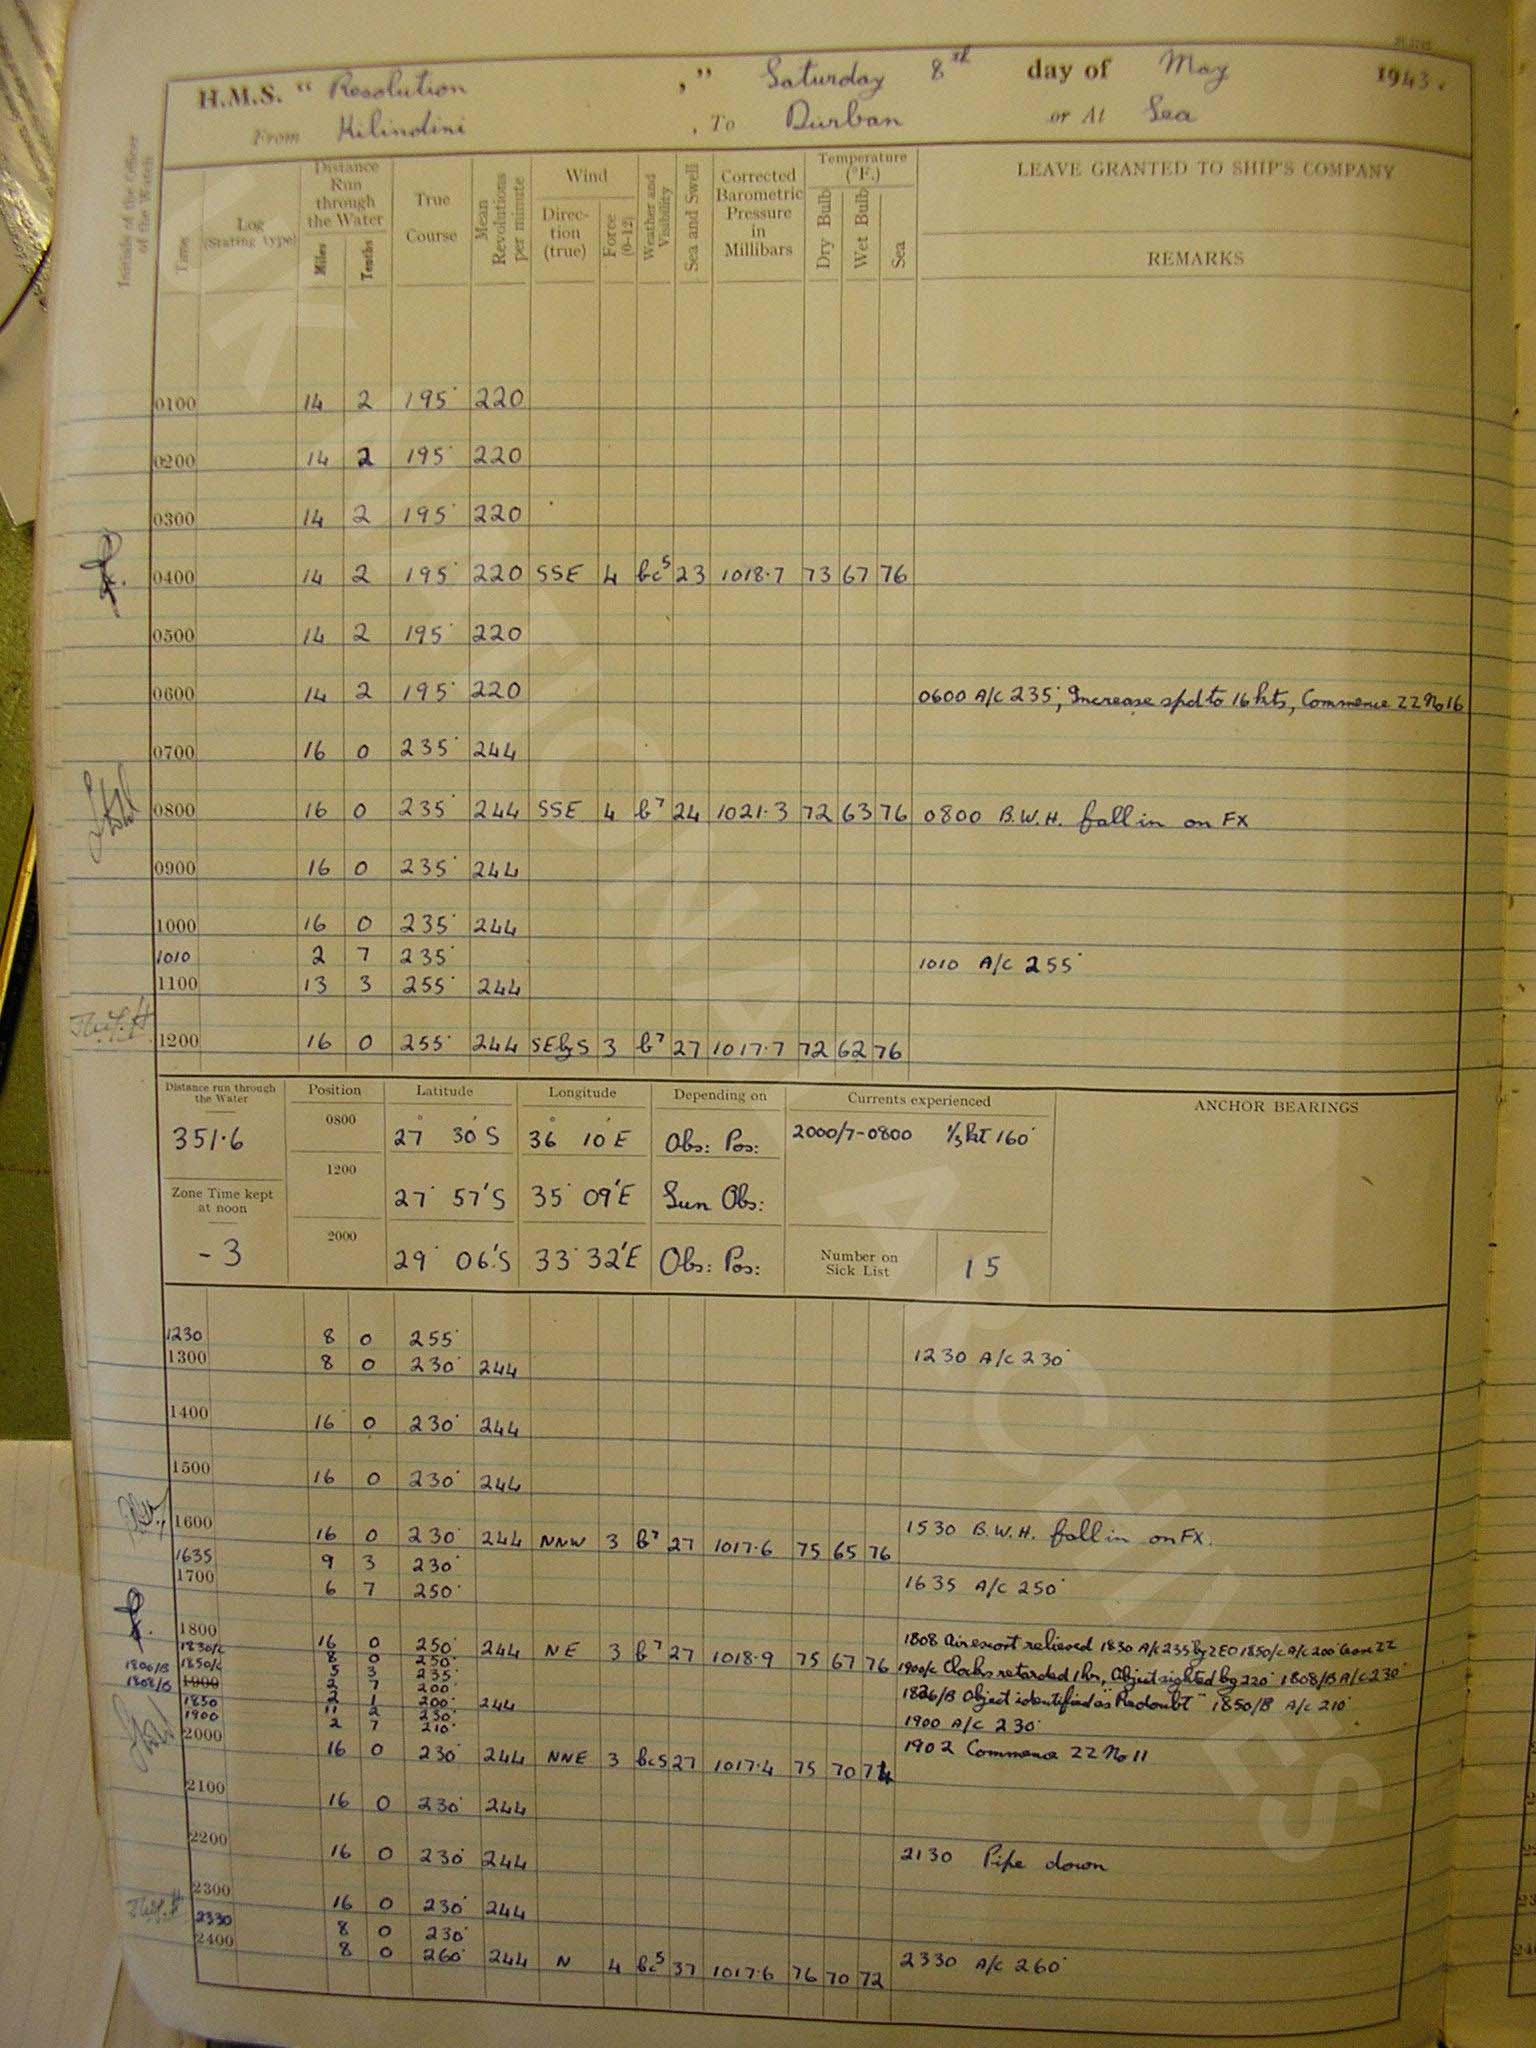 H.M.S. "Resolution ," Saturday 8th day of May 1943.
From Kilindini , To Durban or At Sea
Initials of the Officer of the Watch
Time
Log (Stating type)
Distance Run through the Water
Miles
Tenths
True Course
Mean Revolutions per minute
Wind
Direction (true)
Force (0-12)
Weather and Visibility
Sea and Swell
Corrected Barometric Pressure in Millibars
Temperature (°F.)
Dry Bulb
Wet Bulb
Sea
LEAVE GRANTED TO SHIP'S COMPANY
REMARKS
0100 14 2 195° 220
0200 14 2 195° 220
0300 14 2 195° 220
0400 14 2 195° 220 SSE 4 bc5 23 1018.7 73 67 76
0500 14 2 195° 220
0600 14 2 195° 220 0600 A/C 235°, Increase spd to 16 kts, Commence ZZ No 16
0700 16 0 235° 244
0800 16 0 235° 244 SSE 4 b7 24 1021.3 72 63 76 0800 B.W.H. fall in on FX
0900 16 0 235° 244
1000 16 0 235° 244
1010 2 7 235° 1010 A/C 255°
1100 13 3 255° 244
1200 16 0 255° 244 SEbyS 3 b7 27 1017.7 72 62 76
Distance run through the Water
351.6
Zone Time kept at noon
- 3
Position Latitude Longitude Depending on Currents experienced ANCHOR BEARINGS
0800 27° 30' S 36° 10' E Obs: Pos: 2000/7-0800 1/3 kt 160°
1200 27° 57' S 35° 09' E Sun Obs:
2000 29° 06' S 33° 32' E Obs: Pos: Number on Sick List 15
1230 8 0 255°
1300 8 0 230° 244 1230 A/C 230°
1400 16 0 230° 244
1500 16 0 230° 244
1600 16 0 230° 244 NNW 3 b7 27 1017.6 75 65 76 1530 B.W.H. fall in on FX.
1635 9 3 230°
1700 6 7 250° 1635 A/C 250°
1800 16 0 250° 244 NE 3 b7 27 1018.9 75 67 76 1808 Air escort relieved 1830 A/C 235° by ZEO 1850/C A/C 200° Cease ZZ
1830/C 8 0 250°
1850/C 5 3 235° 1900/C Clocks retarded 1hr, Object sighted bg 220° 1808/B A/C 230°
1808/B 1900 2 7 200°
1850 2 1 200° 244 1826/B Object identified as "Redoubt" 1850/B A/C 210°
1900 11 2 230°
2 7 210° 1900 A/C 230°
2000 16 0 230° 244 NNE 3 bc5 27 1017.4 75 70 74 1902 Commence ZZ No 11
2100 16 0 230° 244
2200 16 0 230° 244 2130 Pipe down
2300 16 0 230° 244
2330 8 0 230°
2400 8 0 260° 244 N 4 bc5 37 1017.6 76 70 72 2330 A/C 260°
THE NATIONAL ARCHIVES